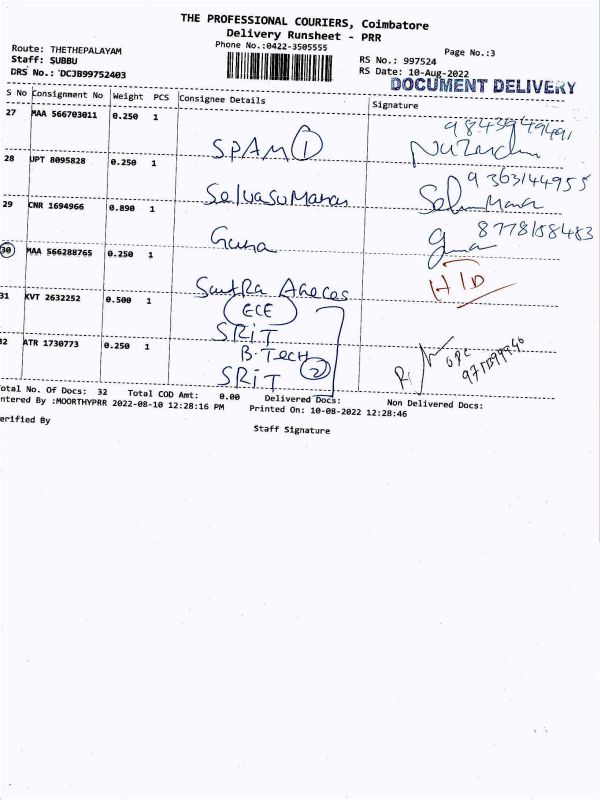 THE PROFESSIONAL COURIERS, Coimbatore
Delivery Runsheet - PRR
Phone No.:0422-3505555
Page No.:3
Route: THETHEPALAYAM
Staff: SUBBU
DRS No.: DCJB99752403
RS No.: 997524
RS Date: 10-Aug-2022
DOCUMENT DELIVERY
S No Consignment No Weight PCS Consignee Details Signature
27 MAA 566703011 0.250 1 SPAM 1
28 UPT 8095828 0.250 1 Selvasumaran 9363144955
29 CNR 1694966 0.890 1 Guna 8778158483
30 MAA 566288765 0.250 1 H/D
31 KVT 2632252 0.500 1 ECE SRiT
32 ATR 1730773 0.250 1 B.Tech SRiT 2
otal No. Of Docs: 32 Total COD Amt: 0.00 Delivered Docs: Non Delivered Docs:
ntered By :MOORTHYPRR 2022-08-10 12:28:16 PM Printed On: 10-08-2022 12:28:46
erified By Staff Signature